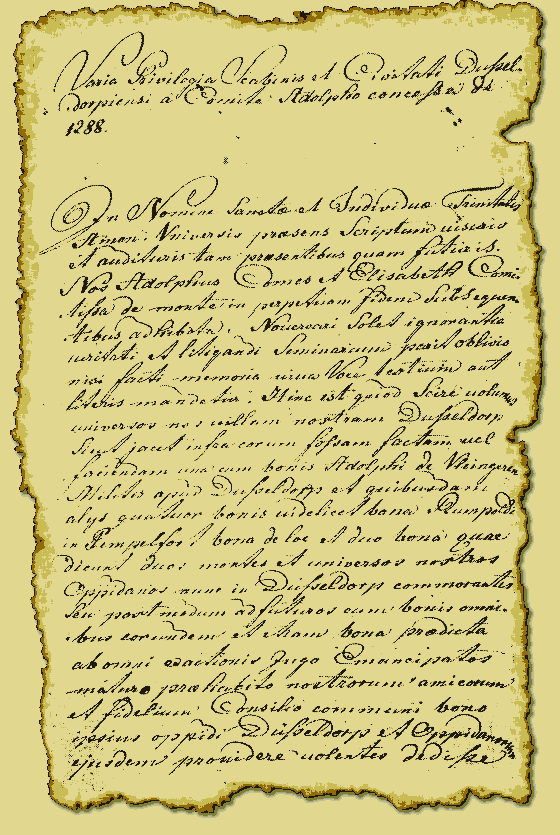 Varia Privilegia Scabinis et Civitati Dussel-
dorpiensi à Comite Adolpho concessa de
1288.
In Nomine Sanctæ et Individuæ Trinitatis
Amen. Universis præsens Scriptum visuris
et audituris tam præsentibus quam futuris.
Nos Adolphus Comes et Elisabeth Comi
tissa de monte in perpetuum fidem Subsequen
tibus adhibeta. Novercari Solet ignorantia
veritati, et litigandi Seminarium parit oblivio
nisi facti memoria viva Voce testium aut
literis mandetur. Hinc est quod Scire volumus
universos nos villam nostram Dusseldorp
Sicut jacet infra eorum fossam factam vel
faciendam una cum bonis Adolphi de Vlingeren
Militis apud Dusseldorp et quibusdam
alys quatuor bonis videlicet bona Rumpoldi
in Pempelfort bona de loe et duo bona quae
dicunt duos montes et universos nostros
Oppidanos nunc in Dusseldorp commorantes
Seu post modum adfuturos cum bonis omni-
bus eorundem et etiam bona prædicta
ab omni exactionis Jugo Emancipatos
maturo præhabito nostrorum amicorum
et fidelium Consilio communi bono
ipsius oppidi Düsseldorp et Oppidanorum
ejusdem providere volentes dedisse